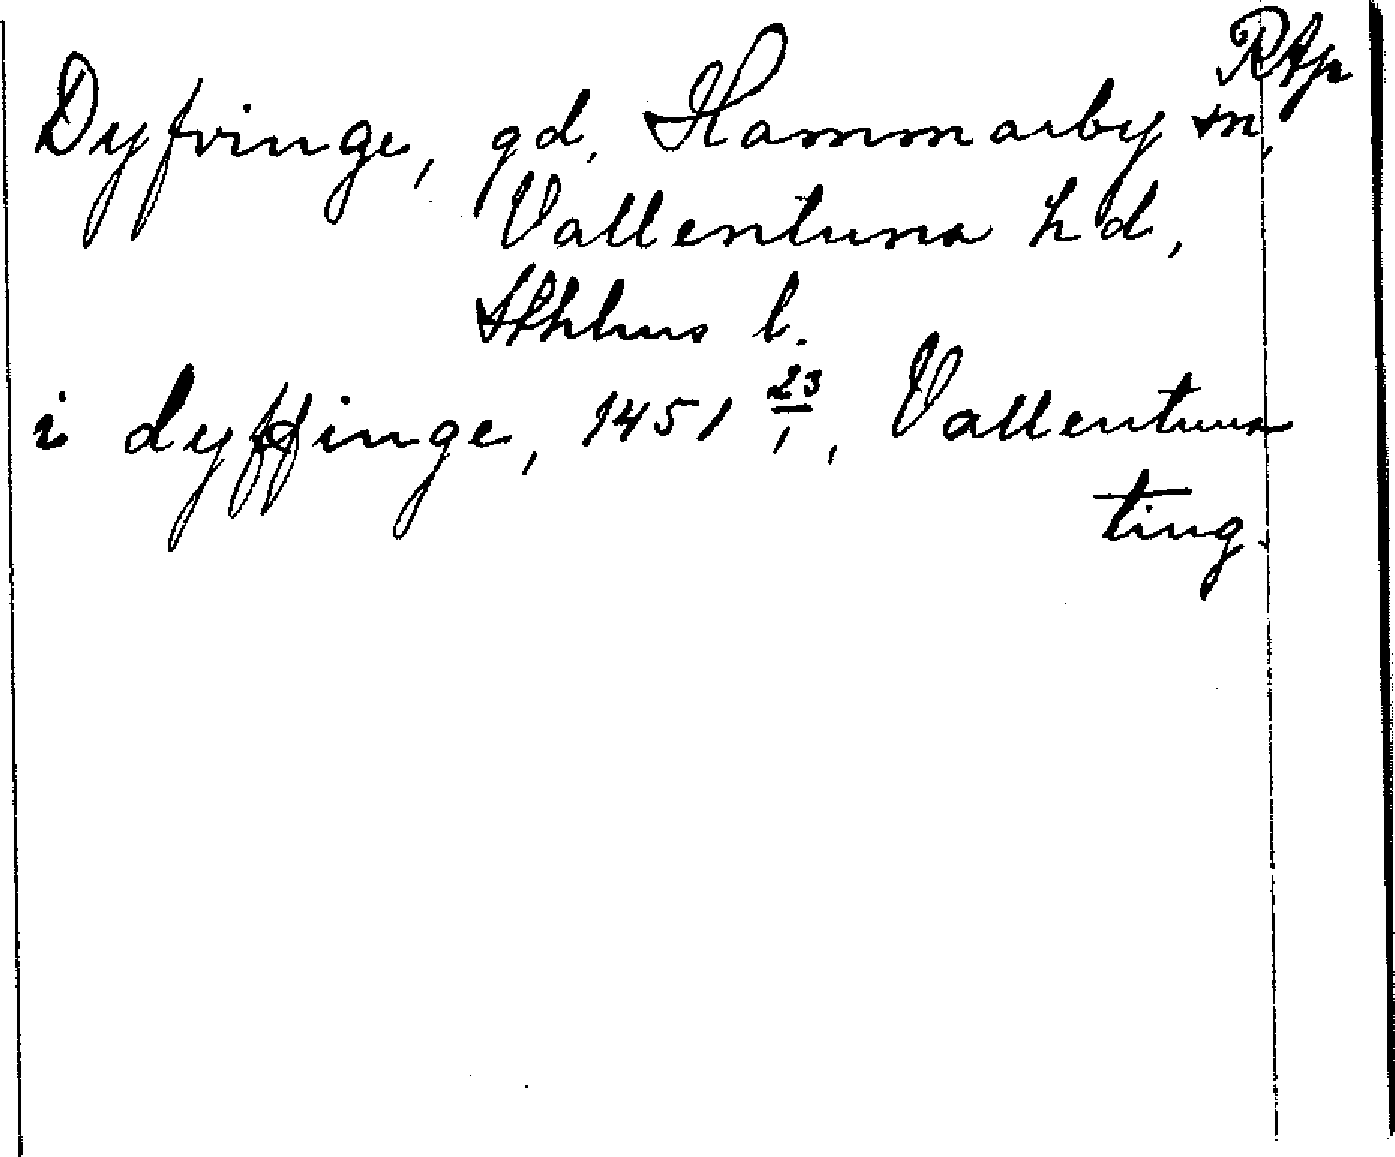 RAp
Dyfvinge, gd, Hammarby sn,
Vallentuna hd,
Sthlms l.
i dyffinge, 1451 23/1, Vallentuna
ting.